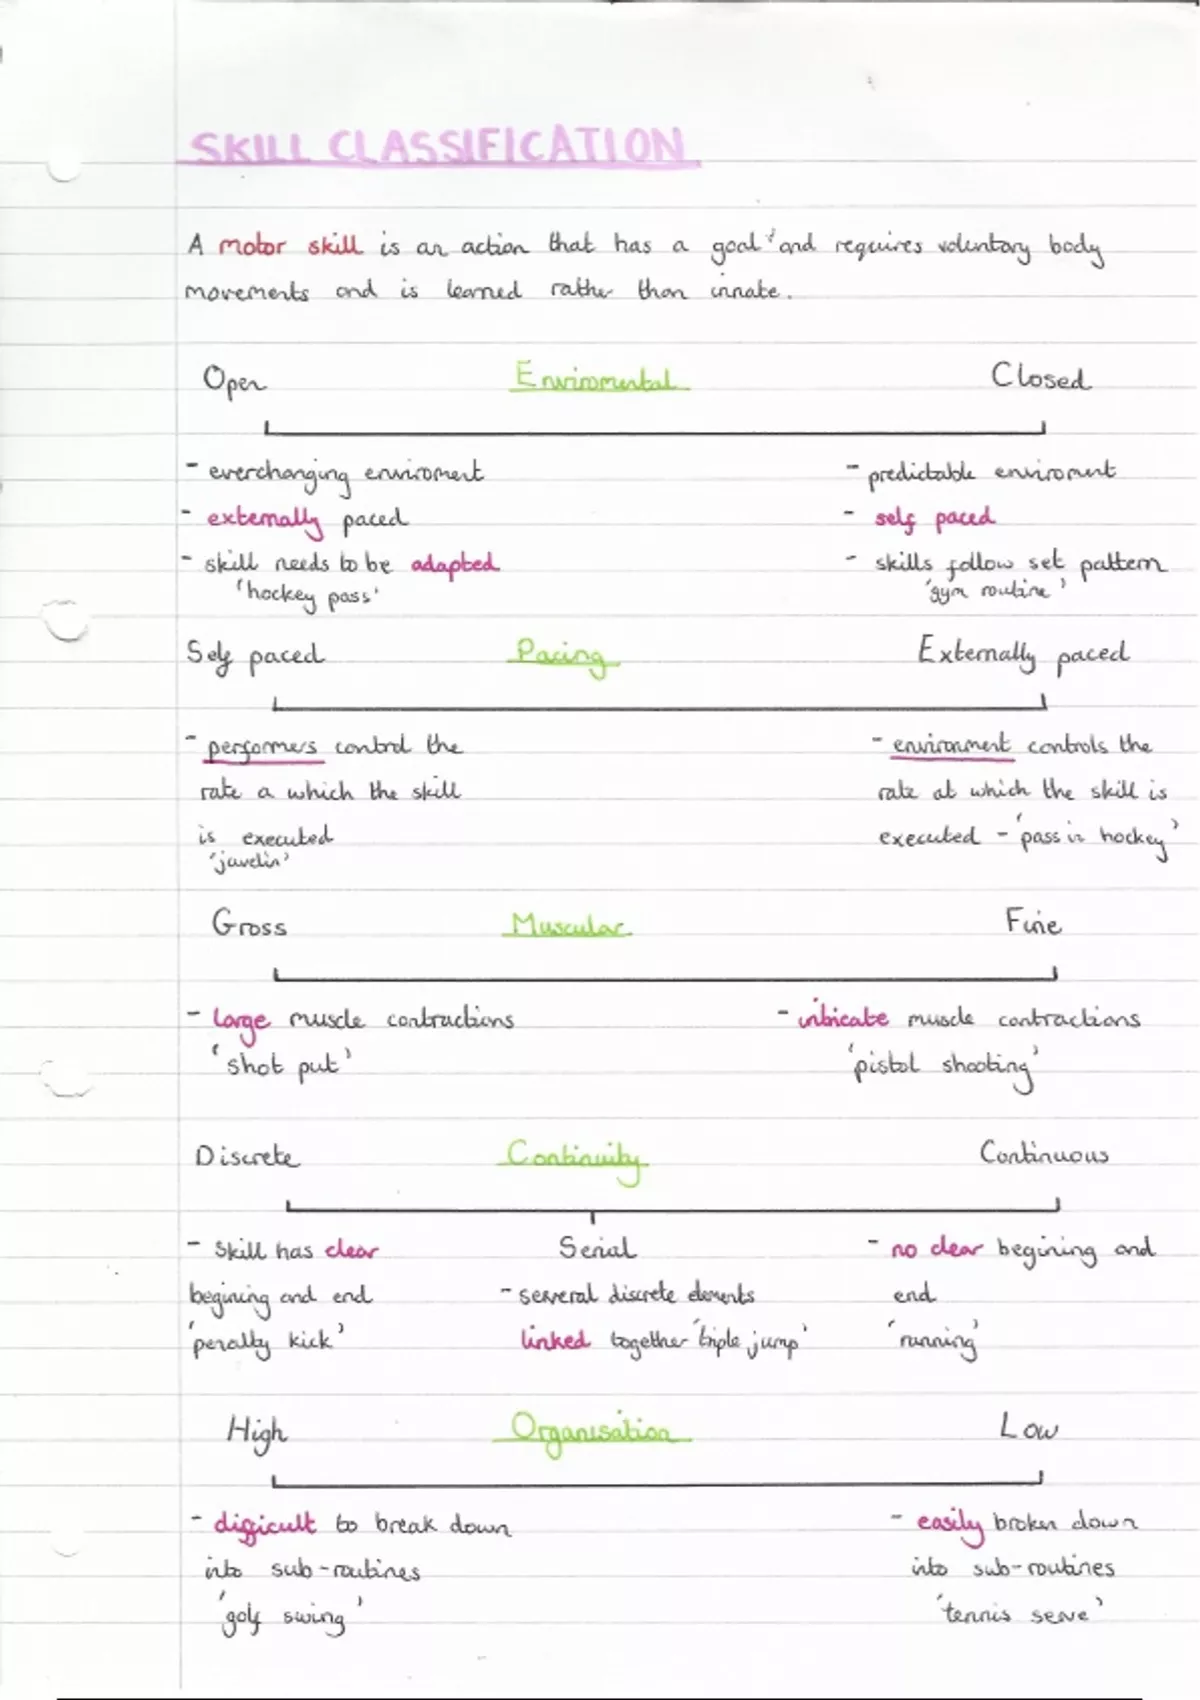 SKILL CLASSIFICATION
A motor skill is an action that has a goal and requires voluntary body
movements and is learned rather than innate.
Open Enviromental Closed
- everchanging enviroment - predictable enviroment
- externally paced - self paced
- skill needs to be adapted - skills follow set pattern
'hockey pass' 'gym routine'
Self paced Pacing Externally paced
- performers control the - environment controls the
rate a which the skill rate at which the skill is
is executed executed - 'pass in hockey'
'javelin'
Gross Muscular Fine
- large muscle contractions - intricate muscle contractions
'shot put' 'pistol shooting'
Discrete Continuity Continuous
- Skill has clear Serial - no clear begining and
begining and end - several discrete elements end
'penalty kick' linked together 'triple jump' 'running'
High Organisation Low
- difficult to break down - easily broken down
into sub-routines into sub-routines
'golf swing' 'tennis serve'